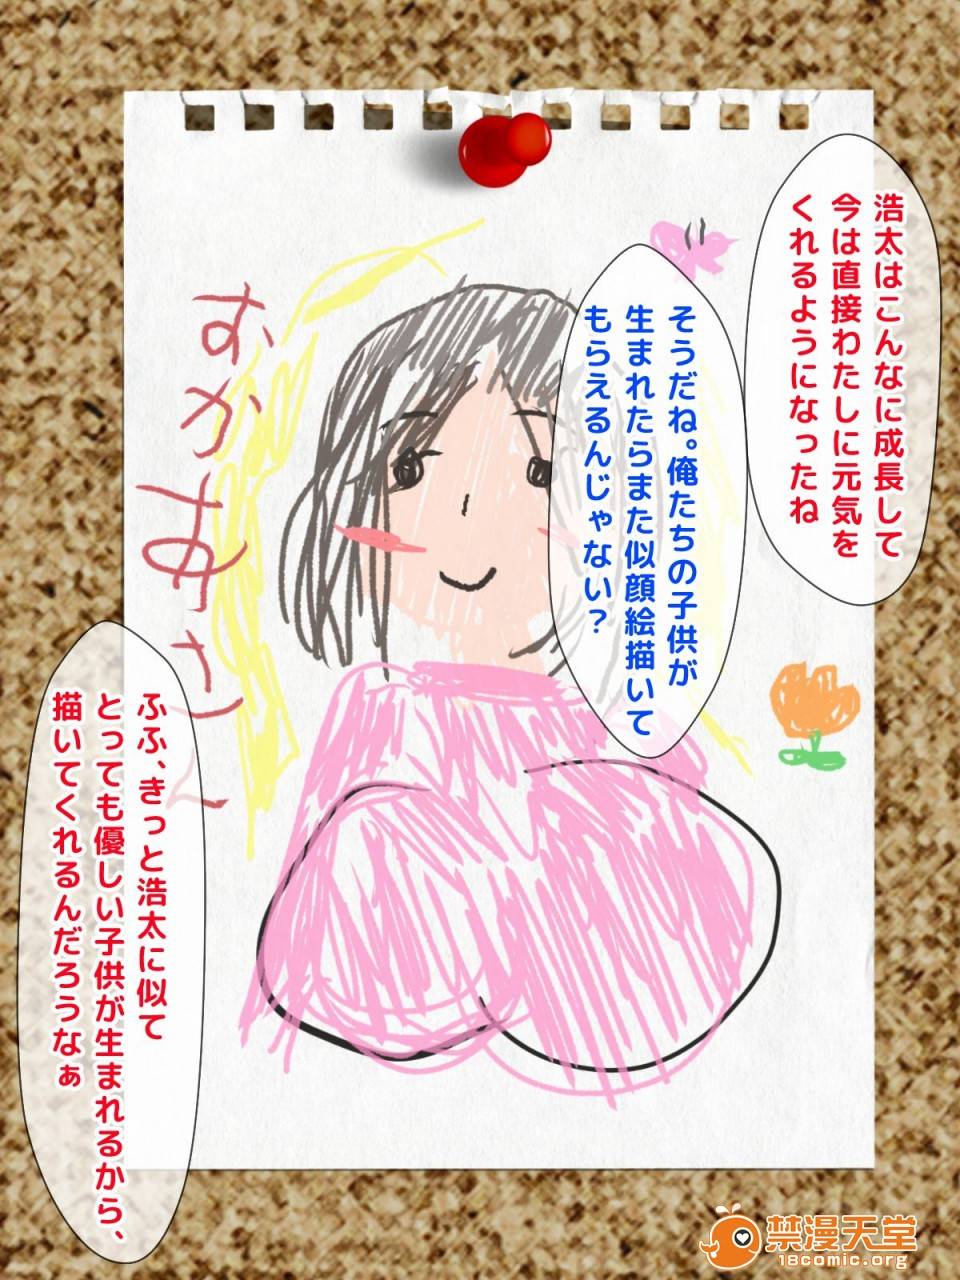 浩太はこんなに成長して
今は直接わたしに元気を
くれるようになったね
そうだね。俺たちの子供が
生まれたらまた似顔絵描いて
もらえるんじゃない？
おかあさん
ふふ、きっと浩太に似て
とっても優しい子供が生まれるから、
描いてくれるんだろうなぁ
禁漫天堂
18comic.org